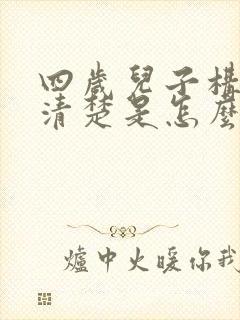 四歲兒子構
清楚是怎麼
爐中火暖你我